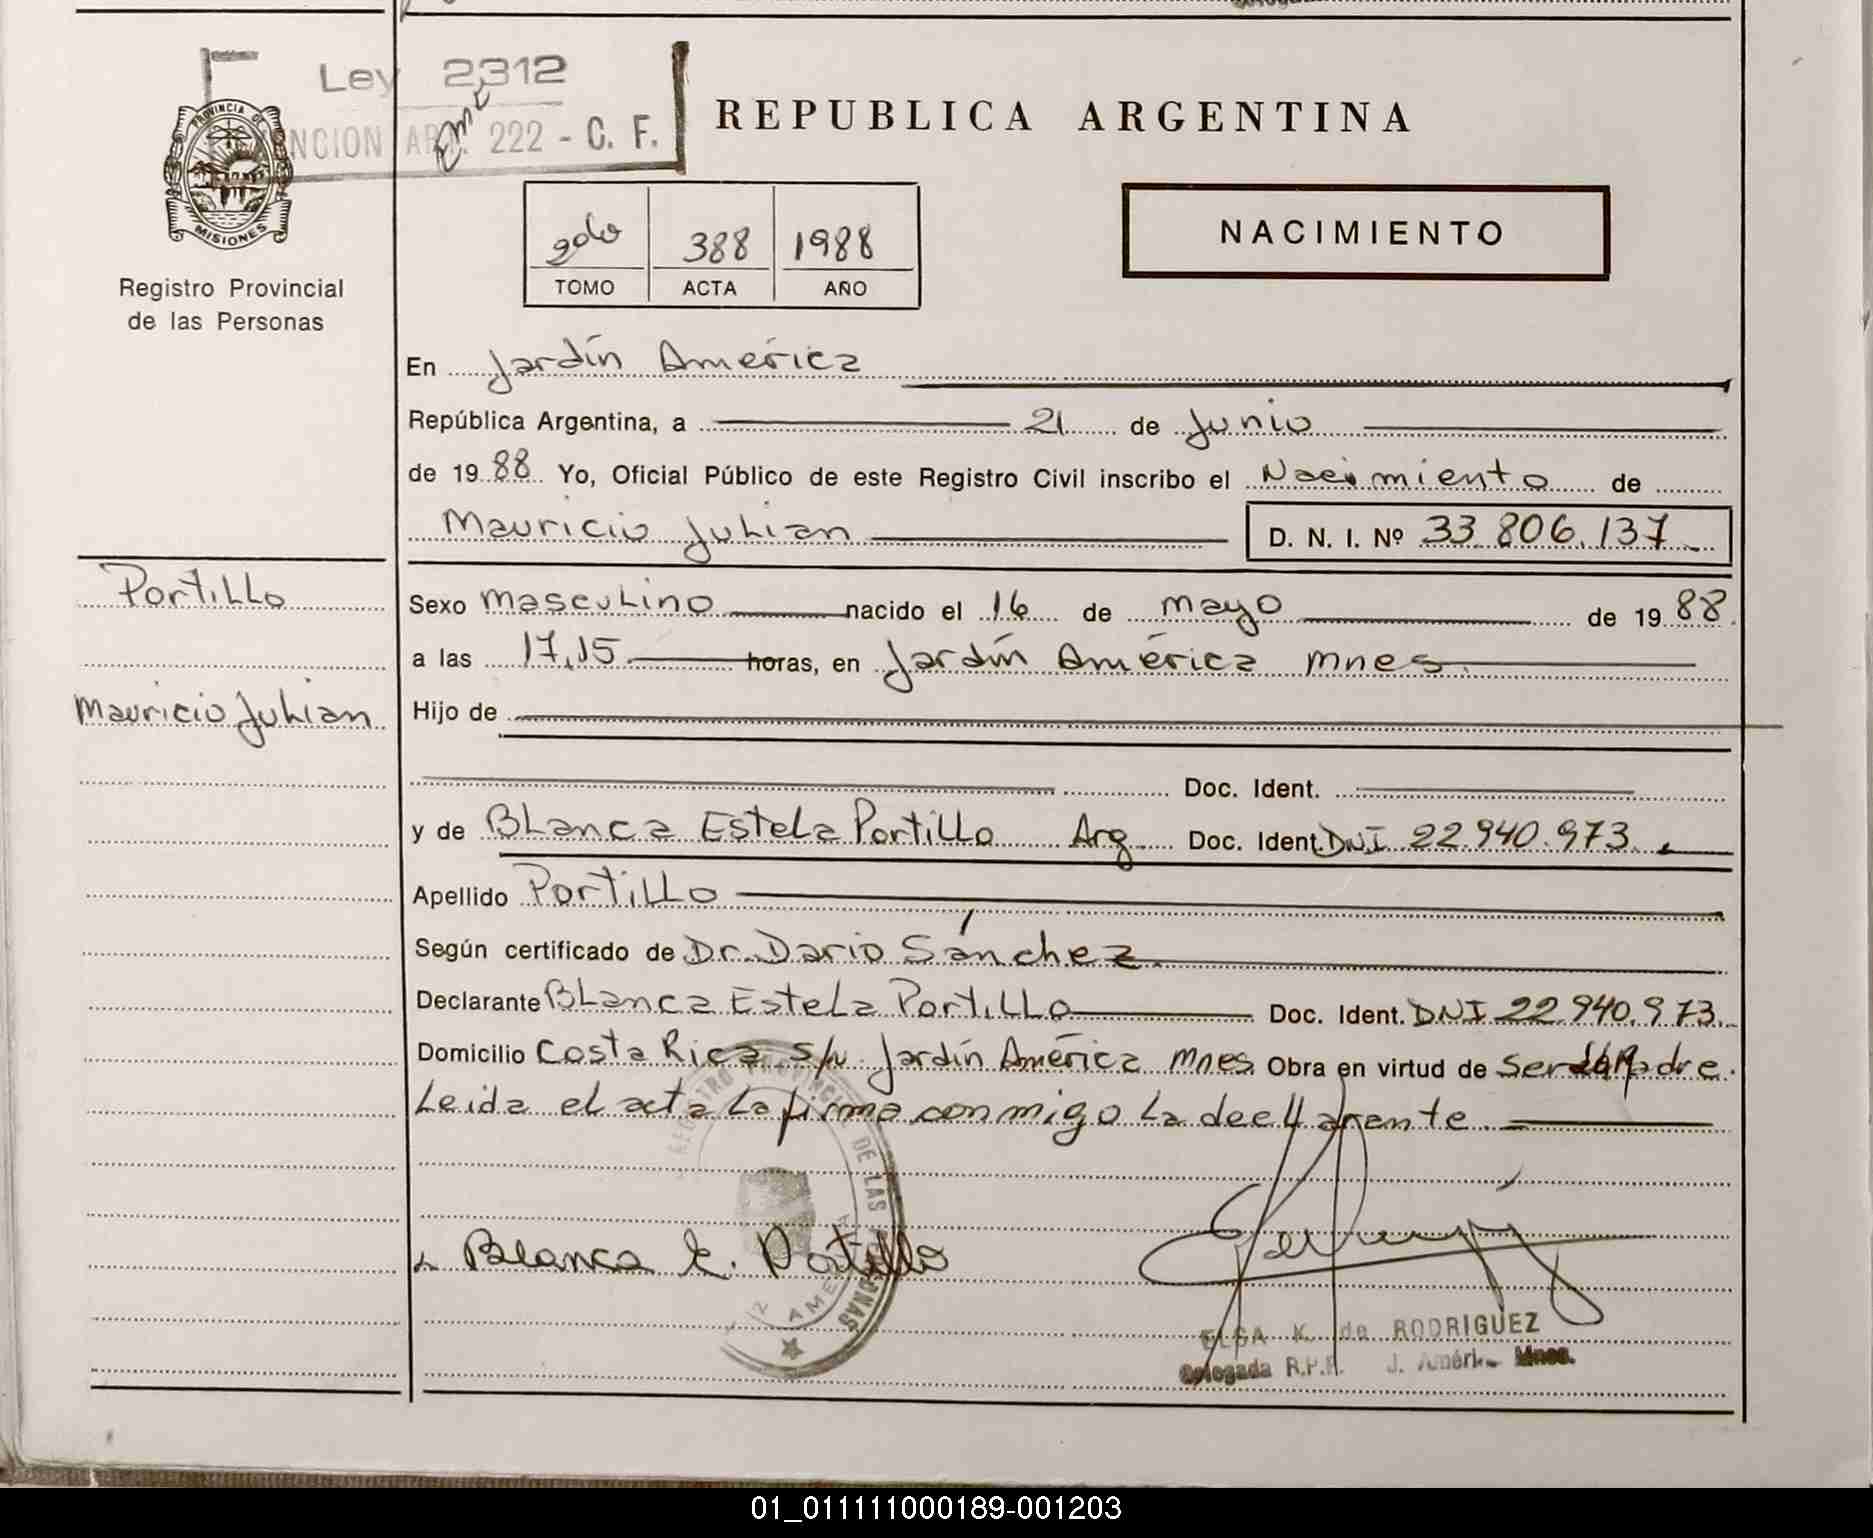 Ley 2312
NCION ART. 222 - C. F.
PROVINCIA DE
MISIONES
Registro Provincial
de las Personas
REPUBLICA ARGENTINA
NACIMIENTO
2do 388 1988
TOMO ACTA AÑO
En Jardín América
República Argentina, a 21 de Junio
de 1988 Yo, Oficial Público de este Registro Civil inscribo el Nacimiento de
Mauricio Julian D. N. I. Nº 33.806.137
Portillo
Mauricio Julian
Sexo masculino nacido el 16 de mayo de 1988
a las 17,15 horas, en Jardín América Mnes.
Hijo de
Doc. Ident.
y de Blanca Estela Portillo Arg Doc. Ident. DNI 22.940.973.
Apellido Portillo
Según certificado de Dr. Dario Sánchez.
Declarante Blanca Estela Portillo Doc. Ident. DNI 22.940.973.
Domicilio Costa Rica s/n Jardín América Mnes. Obra en virtud de ser la Madre.
Leida el acta la firma conmigo la declarante.
REGISTRO PROVINCIAL DE LAS PERSONAS
Blanca E. Portillo
ELSA K. de RODRIGUEZ
Delegada R.P.P. J. América Mnes.
01_011111000189-001203